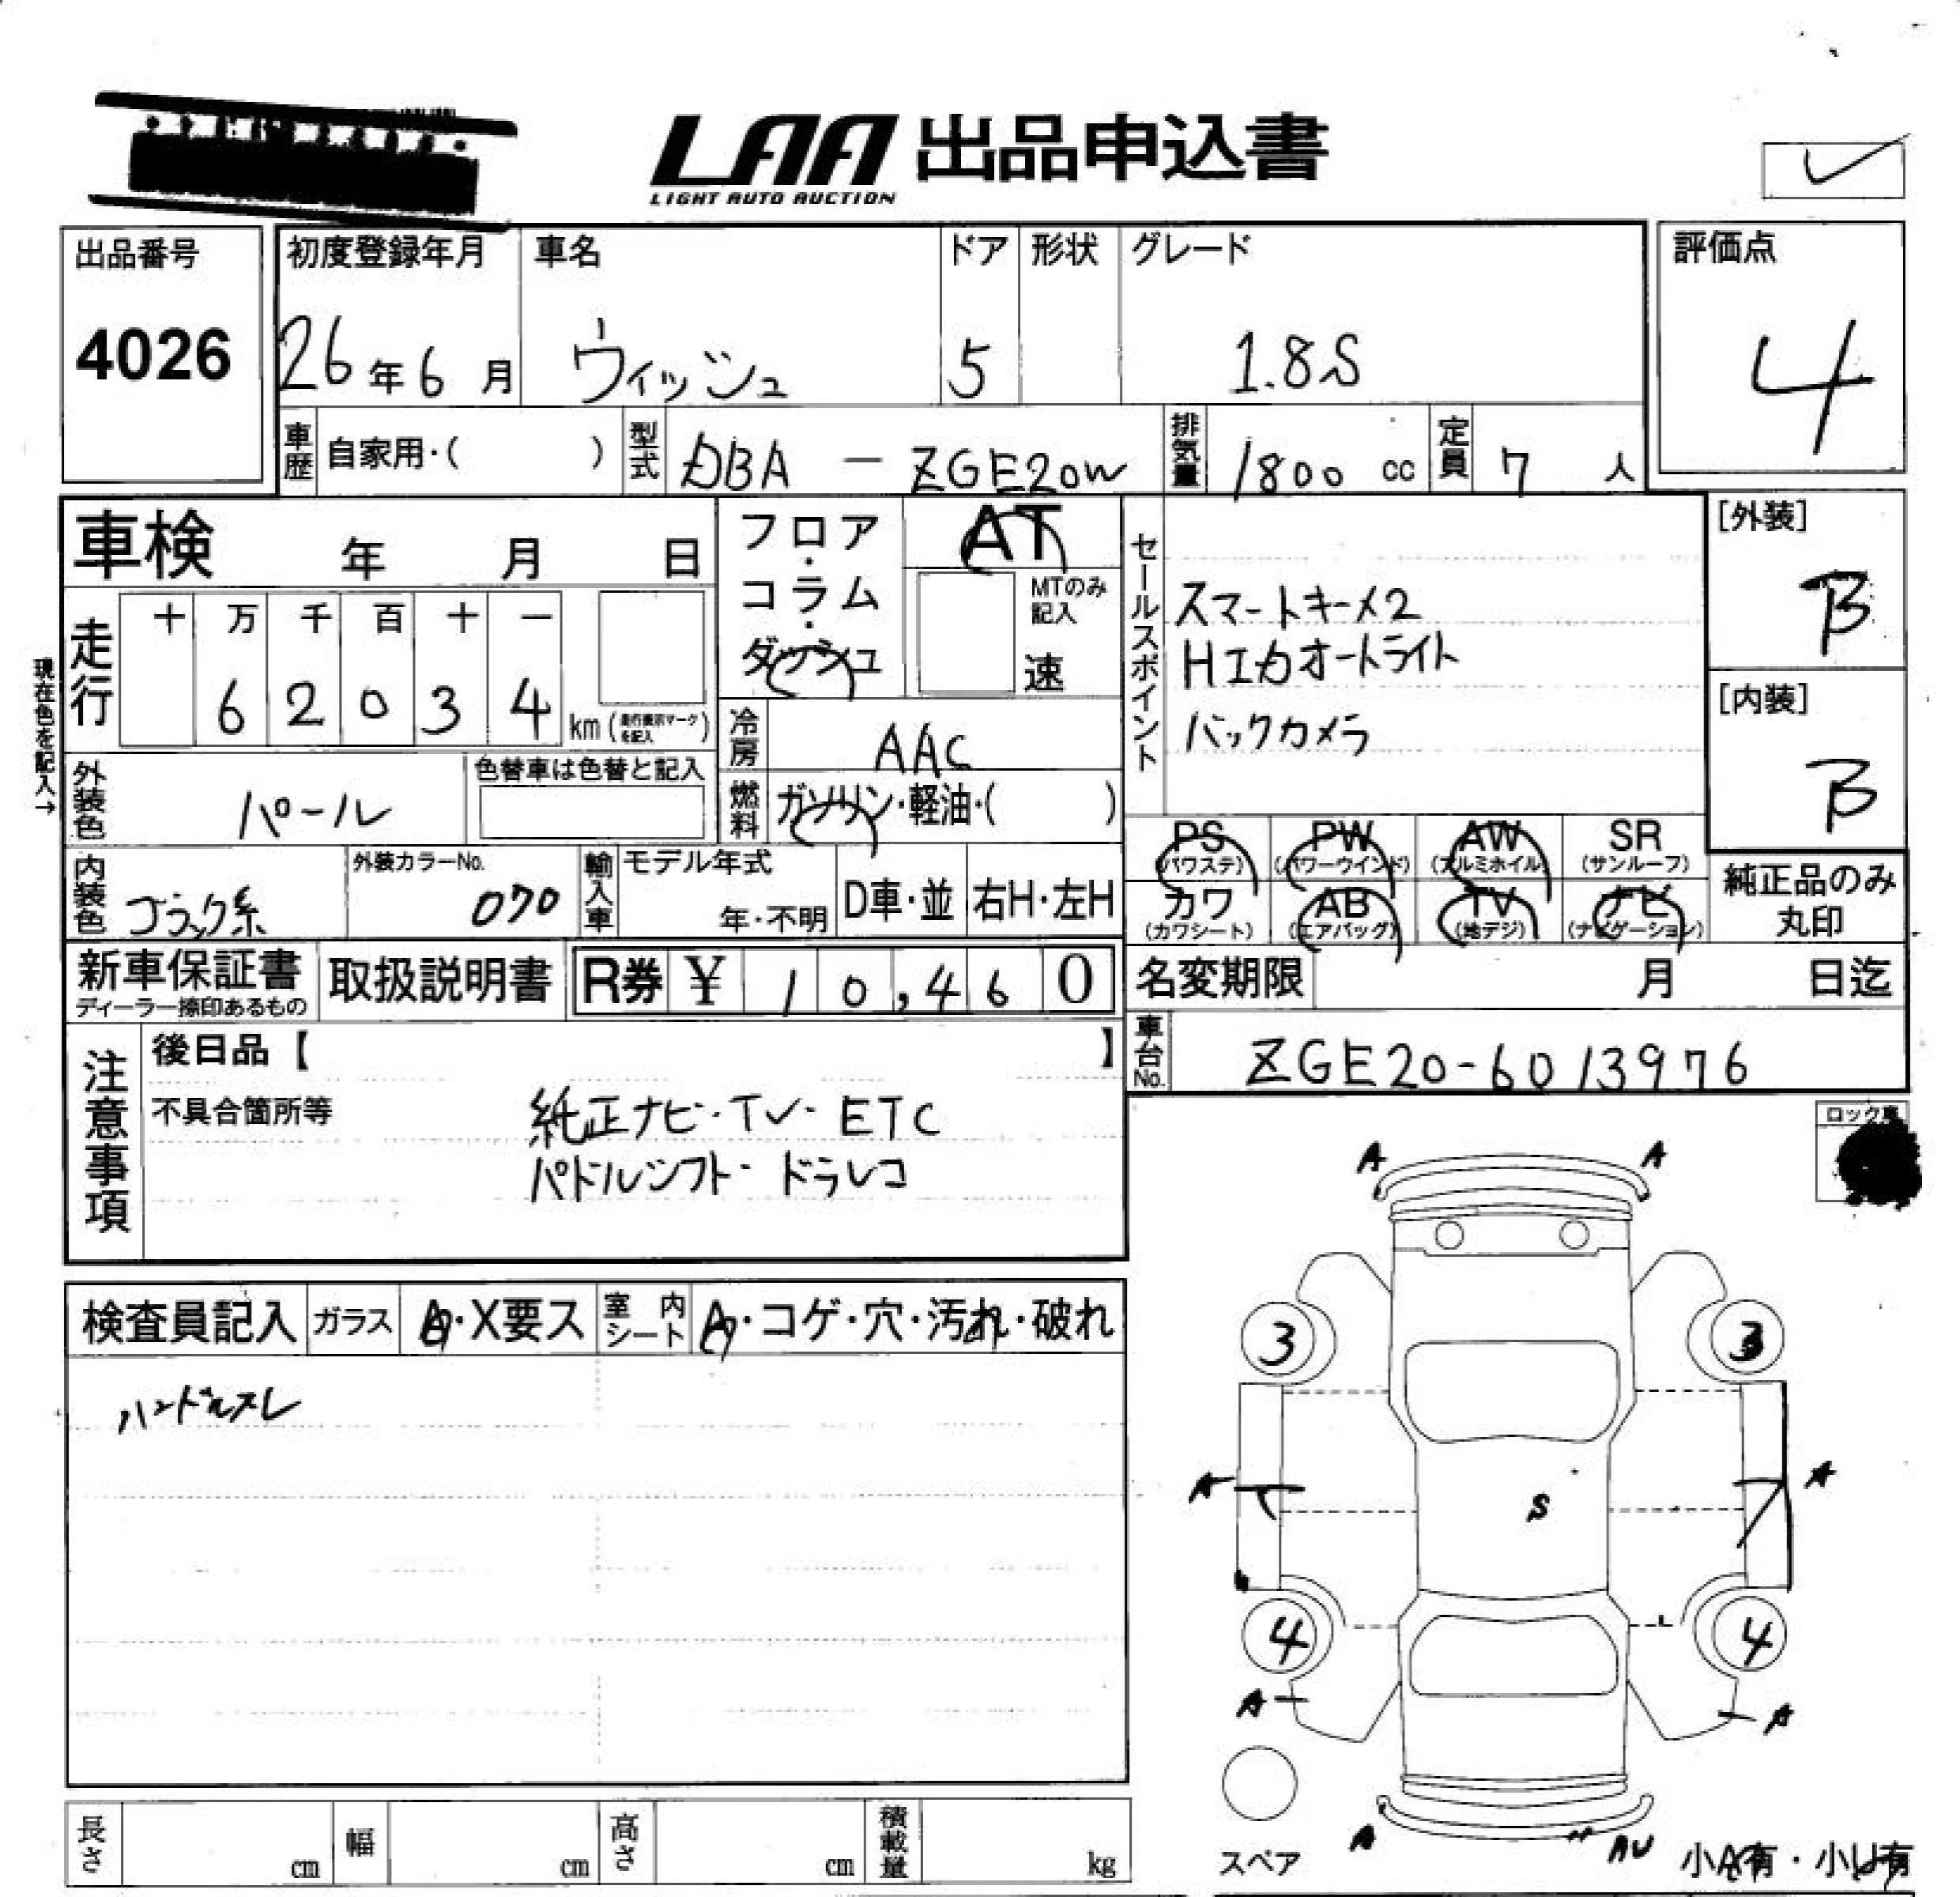 LAA 出品申込書
LIGHT AUTO AUCTION
出品番号
4026
初度登録年月
26年6月
車名
ウィッシュ
ドア
5
形状
グレード
1.8S
評価点
4
車歴
自家用・( )
型式
DBA - ZGE20W
排気量
1800 cc
定員
7 人
車検 年 月 日
フロア・コラム・ダッシュ
AT
MTのみ記入
速
セールスポイント
スマートキーメ2
HIDオートライト
バックカメラ
[外装]
B
[内装]
B
現在色を記入→
走行
十 万 千 百 十 一
6 2 0 3 4 km (走行表示マークを記入)
冷房
AAC
燃料
ガソリン・軽油・( )
外装色
パール
色替車は色替と記入
内装色
ブラック系
外装カラーNo.
070
輸入車
モデル年式
年・不明
D車・並
右H・左H
PS (パワステ)
PW (パワーウインド)
AW (アルミホイル)
SR (サンルーフ)
カワ (カワシート)
AB (エアバッグ)
TV (地デジ)
ナビ (ナビゲーション)
純正品のみ丸印
新車保証書
ディーラー捺印あるもの
取扱説明書
R券 ¥ 10,460
名変期限 月 日迄
車台No.
ZGE20-6013976
注意事項
後日品【 】
不具合箇所等
純正ナビ・TV・ETC
パドルシフト・ドラレコ
ロック車
検査員記入
ガラス
A・X要ス
室内シート
A・コゲ・穴・汚れ・破れ
ハンドルスレ
A A
3 3
A A
S
4 4
A A
A AU
スペア
小A有・小U有
長さ cm
幅 cm
高さ cm
積載量 kg